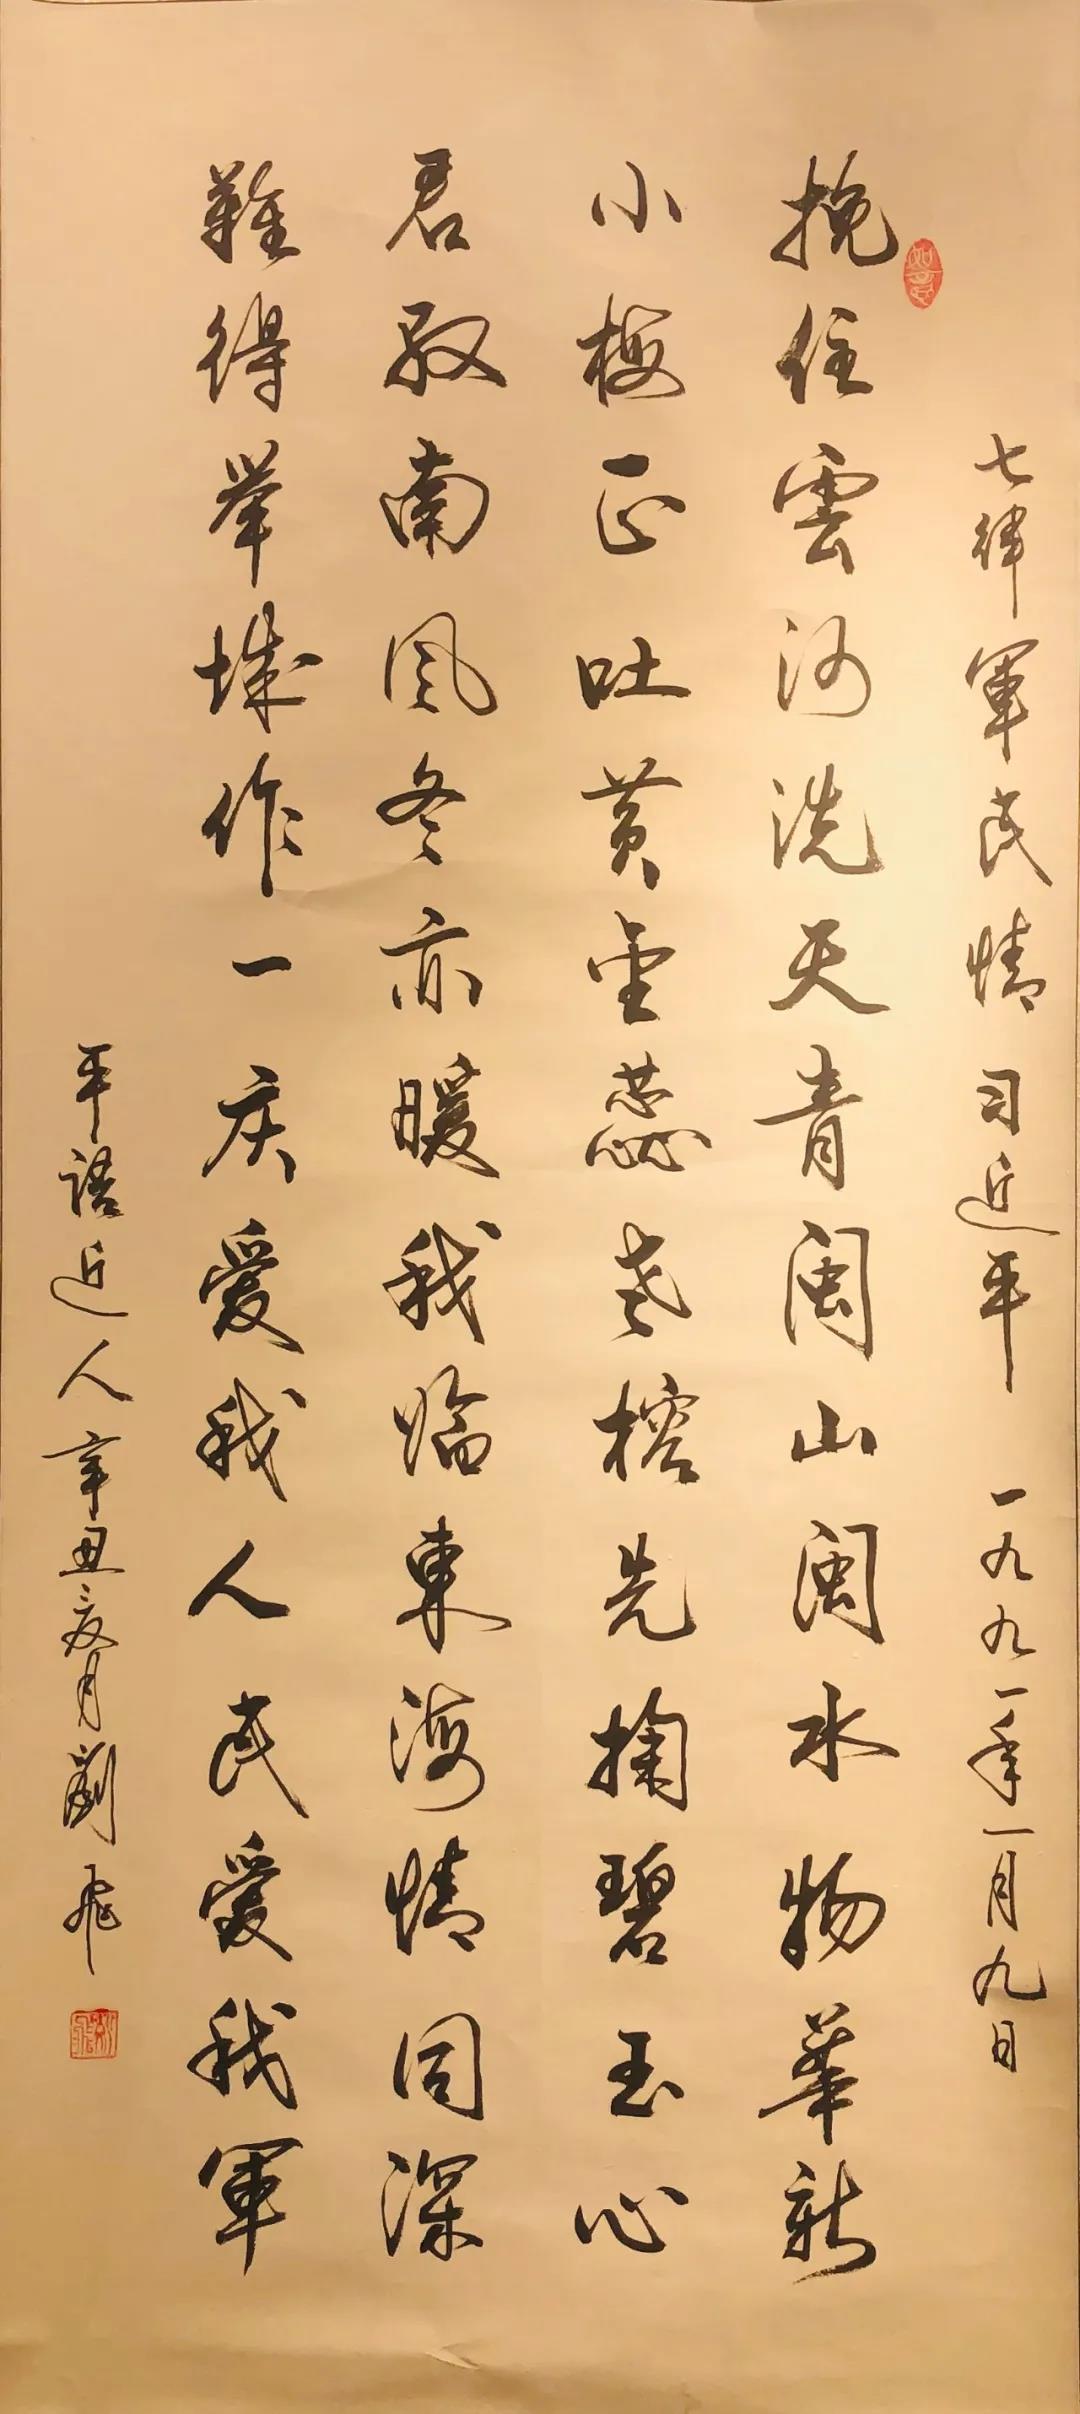 七律 軍民情 习近平 一九九一年一月九日
如意
挽住雲河洗天青闽山闽水物華新
小梅正吐黄金蕊老榕先掬碧玉心
君驭南风冬亦暖我临東海情同深
難得举城作一庆爱我人民爱我軍
平語近人 辛丑夏月劉飛